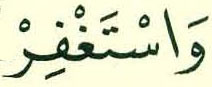 وَاسْتَغْفِرْ